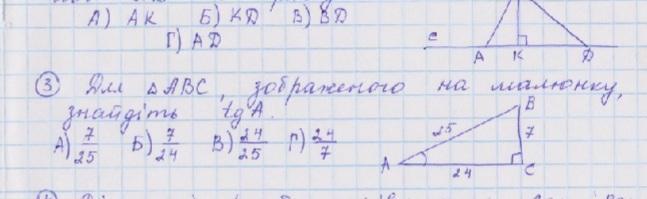 А) АК Б) КD В) BD
Г) AD
c A K D
③ Для △ABC, зображеного на малюнку,
знайдіть tg A.
А) 7/25 Б) 7/24 В) 24/25 Г) 24/7
B
25 7
A 24 C